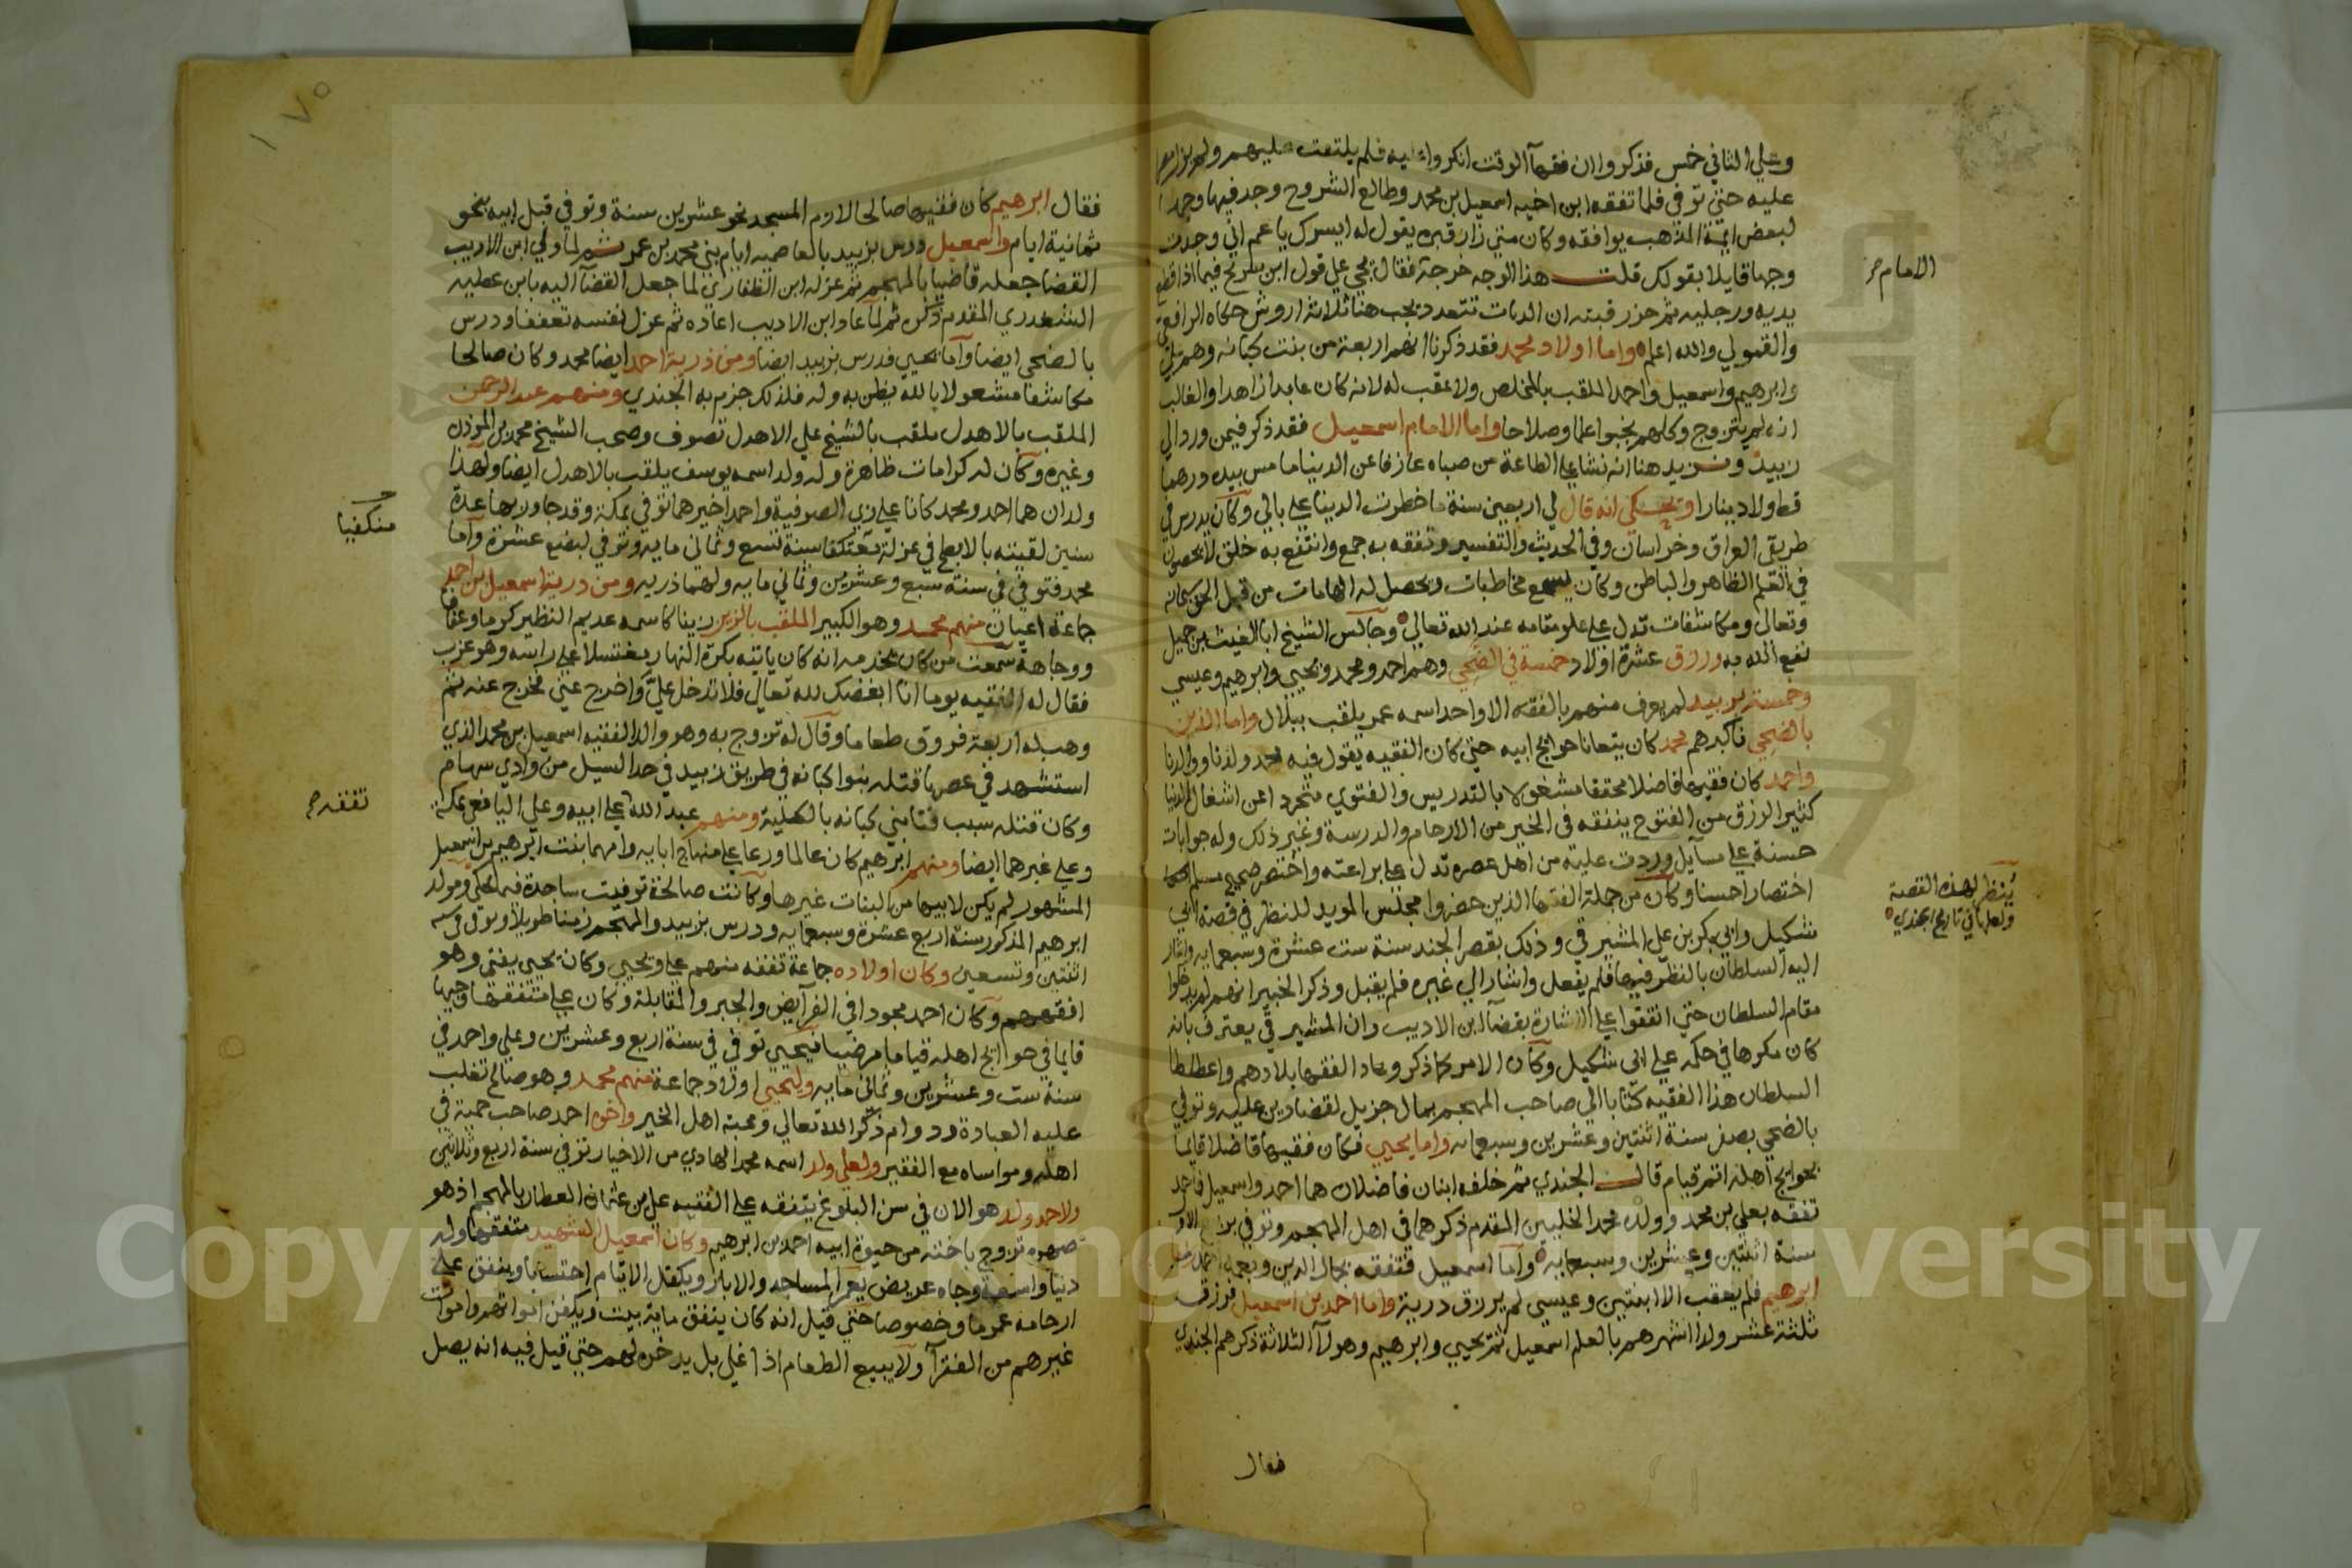 وعلي الثاني خمس فذكروا ان فقهآ الوقت انكروا عليه فلم يلتفت عليهم ولم يزل مصرا
عليه حتي توفي فلما تفقه ابن اخيه اسمعيل بن محمد وطالع الشروح وجد فيها وجها
لبعض ايمة المذهب يوافقه وكان متي زار قبره يقول له ايسرك يا عم اني وجدت
وجها قايلا بقولك قلت هذا الوجه خرجه فقال يجي علي قول ابن سريج فيما اذا قطع
يديه ورجليه ثم حز رقبته ان الديات تتعدد يجب هنا ثلاثة اروش حكاه الرافعي
والقمولي والله اعلم واما اولاد محمد فقد ذكرنا انهم اربعة من بنت كبانه وهم علي
وابرهيم واسمعيل واحمد الملقب بالمخلص ولا عقب له لانه كان عابدا زاهدا والغالب
انه لم يتزوج وكلهم نجبوا علما وصلاحا واما الامام اسمعيل فقد ذكر فيمن ورد الي
زبيد ونزيد هنا انه نشا علي الطاعة من صباه عازفا عن الدينا ما مس بيده درهما
قط ولا دينارا ويحكي انه قال لي اربعين سنة ما خطرت الدينا علي بالي وكان يدرس في
طريقي العراق وخراسان وفي الحديث والتفسير وتفقه به جمع وانتفع به خلق لا يحصون
في العلم الظاهر والباطن وكان يسمع مخاطبات ويحصل له الهامات من قبل الحق سبحانه
وتعالي ومكاشفات تدل علي علو مقامه عند الله تعالي وجالس الشيخ ابا الغيث بن جميل
نفع الله به ورزق عشرة اولاد خمسة في الضحي وهم احمد ومحمد ويحيي وابرهيم وعيسي
وخمسة بزبيد لم يعرف منهم بالفقه الا واحد اسمه عمر يلقب ببلال واما الذين
بالضحي فاكبرهم محمد كان يتعانا حوايج ابيه حتي كان الفقيه يقول فيه محمد ولدنا ووالدنا
واحمد كان فقيها فاضلا محققا مشغولا بالتدريس والفتوي متجردا عن اشغال الدنيا
كثير الرزق من الفتوح ينفقه في الخير من الارحام والدرسة وغير ذلك وله جوابات
حسنة علي مسآيل وردت عليه من اهل عصره تدل علي براعته واختصر صحيح مسلم
اختصارا حسنا وكان من جملة الفقها الذين حضروا مجلس المويد للنظر في قصة ابي
شكيل وابي بكر بن علي المشيرقي وذلك بقصر الجند سنة ست عشرة وسبعمايه واشار
اليه السلطان بالنظر فيها فلم يفعل واشار الي غيره فلم يقبل وذكر الخبير انهم لم يدخلوا
مقام السلطان حتي اتفقوا علي الاشارة بقضآ ابن الاديب وان المشيرقي يعترف بانه
كان مكرها في حكمه علي ابي شكيل وكان الامر كما ذكر وعاد الفقها بلادهم واعطا
السلطان هذا الفقيه كتابا الي صاحب المهجم بمال جزيل لقضا دين عليه وتوفي
بالضحي بصفر سنة اثنتين وعشرين وسبعمايه واما يحيي فكان فقيها فاضلا قايما
بحوايج اهله اتم قيام قال الجندي ثم خلفه ابنان فاضلان هما احمد واسمعيل فاحمد
تفقه بعلي بن محمد وولده محمد الخليين المقدم ذكرهما في اهل المهجم وتوفي بربيع الاول
سنة اثنتين وعشرين وسبعمايه واما اسمعيل فتفقه بجمال الدين وبعمه احمد
ابرهيم فلم يعقب الا ابنتين وعيسي لم يرزق درية واما احمد بن اسمعيل فرزق
ثلثة عشر ولدا اشهرهم بالعلم اسمعيل ثم يحيي وابرهيم وهولآ الثلاثة ذكرهم الجندي
فقال
الامام صح
ينظر لهذه القصة
ولعلها في تاريخ الجندي
١٧٥
فقال ابرهيم كان فقيها صالحا لازم المسجد نحو عشرين سنة وتوفي قبل ابيه بنحو
ثمانية ايام واسمعيل درس بزبيد بالعاصميه ايام بني محمد بن عمر ثم لما ولي ابن الاديب
القضا جعله قاضيا بالمهجم ثم عزله ابن الظفاري لما جعل القضآ اليه بابن عطيه
الشغدري المقدم ذكره ثم لما عاد ابن الاديب اعاده ثم عزل نفسه تعففا ودرس
بالضحي ايضا واما يحيي فدرس بزبيد ايضا ومن ذرية احمد ايضا محمد وكان صالحا
مكاشفا مشعولا بالله يظن به وله فلذلك جزم به الجندي ومنهم عبد الرحمن
الملقب بالاهدل يلقب بالشيخ علي الاهدل تصوف وصحب الشيخ محمد بن الموذن
وغيره وكان له كرامات ظاهرة وله ولد اسمه يوسف يلقب بالاهدل ايضا ولهذا
ولدان هما احمد ومحمد كانا علي زي الصوفية واحمد اخيرهما توفي بمكة وقد جاور بها عدة
سنين لقيته بالابطح في عزلة معتكفا سنة تسع وثماني مايه وتوفي لبضع عشرة واما
محمد فتوفي في سنة سبع وعشرين وثماني مايه ولهما ذريه ومن درية اسمعيل بن احمد
جماعة اعيان منهم محمد وهو الكبير الملقب بالزين زينا كاسمه عديم النظير كرما وعفافا
ووجاهة سمعت من كان يخدمه انه كان ياتيه بكرة النهار مغتسلا علي راسه وهو عزب
فقال له الفقيه يوما انا ابغضك لله تعالي فلا تدخل علي واخرج عني فخرج عنه ثم
وهب له اربعة فروق طعاما وقال له تزوج به وهو والد الفقيه اسمعيل بن محمد الذي
استشهد في عصرنا قتله بنوا كبانه في طريق زبيد في حد السيل من وادي سهام
وكان قتله سبب فنا بني كبانه بالكلية ومنهم عبد الله علي ابيه وعلي اليافعي بمكة
وعلي غيرهما ايضا ومنهم ابرهيم كان عالما ورعا علي منهاج ابايه وامهما بنت ابرهيم بن اسمعيل
المشهور لم يكن لابيها من البنات غيرها وكانت صالحة توفيت ساجدة فيما يحكي ومولد
ابرهيم المذكور سنة اربع عشرة وسبعمايه ودرس بزبيد والمهجم زمنا طويلا وتوفي سنة
اثنتين وتسعين وكان اولاده جماعة تفقه منهم علي ويحيي وكان يحيي يفتي وهو
افقههم وكان احمد مجودا في الفرآيض والجبر والمقابلة وكان علي متفقها وجيها
قايما في حوايج اهله قياما مرضيا فيحيي توفي في سنة اربع وعشرين وعلي واحمد في
سنة ست وعشرين وثماني مايه وليحيي اولاد جماعة منهم محمد وهو صالح تغلب
عليه العبادة ودوام ذكر الله تعالي ومحبة اهل الخير واخوه احمد صاحب حمية في
اهله ومواساه مع الفقير ولعلي ولد اسمه محمد الهادي من الاخيار توفي سنة اربع وثلاثين
ولاحمد ولد هو الان في سن البلوغ يتفقه علي الفقيه علي بن عثمان العطار بالمهجم اذ هو
صهره تزوج باخته من حيوة ابيه احمد بن ابرهيم وكان اسمعيل الشهيد متفقها وله
دنيا واسعة وجاه عريض يعمر المساجد والابار ويكفل الايتام احتسابا وينفق علي
ارحامه عموما وخصوصا حتي قيل انه كان ينفق ماية بيت ويكفن امواتهم واموات
غيرهم من الفقرآ ولا يبيع الطعام اذا غلي بل يدخره لهم حتي قيل فيه انه يصل
معتكفا
تفقه صح
Copyright © King Saud University